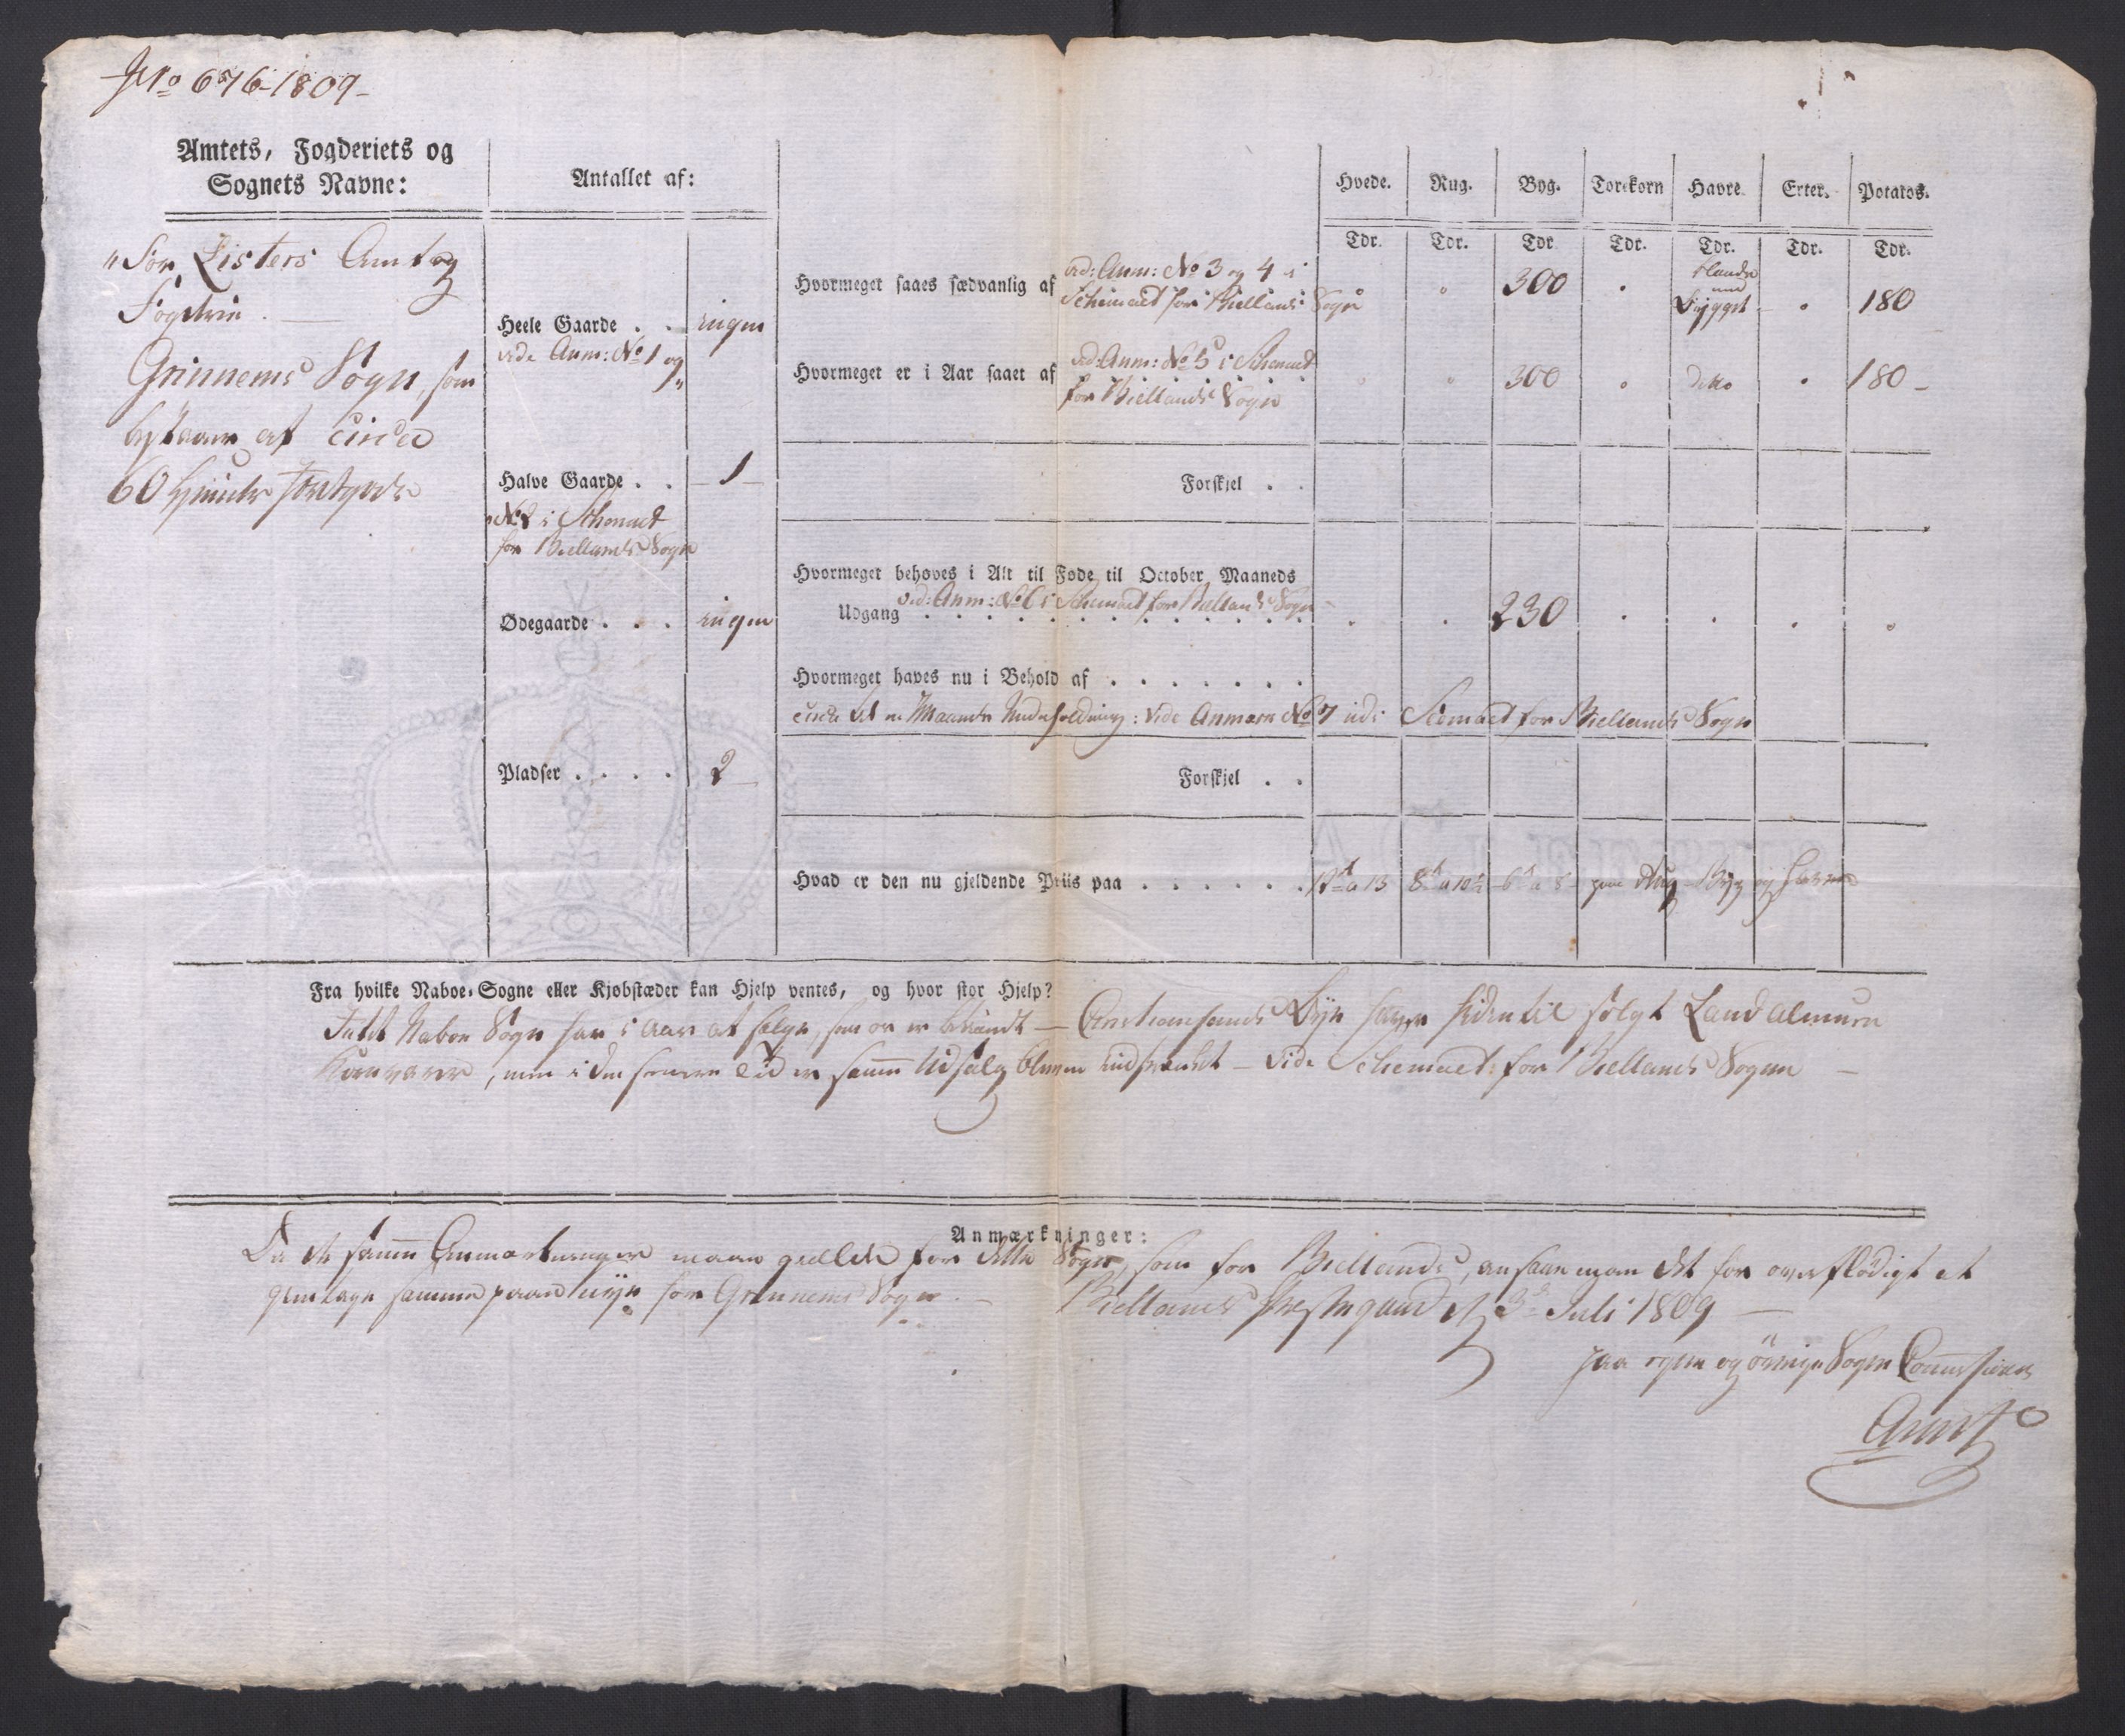 No 676-1809-
Amtets, Fogderiets og
Sognets Navne:
Antallet af:
Hvede. Rug. Byg. Torekorn Havre. Erter. Potatos.
Tdr. Tdr. Tdr. Tdr. Tdr. Tdr. Tdr.
Listers Amt og
Fogderie
Grinnems Sogn, som
bestaar af circa
60
Heele Gaarde . . ingen
vide Anm: No 1 og
Halve Gaarde . . 1
No 2 i Schemaet
for Biellands Sogn
Ødegaarde . . . ingen
Pladser . . . . 2
Hvormeget saaes sædvanlig af vid: Anm: No 3 og 4 i
Schemaet for Biellands Sogn 300 blandt med Bygget 180
Hvormeget er i Aar saaet af vid: Anm: No 5 i Schemaet
for Biellands Sogn 300 dito 180 -
Forskjel . .
Hvormeget behøves i Alt til Føde til October Maaneds
vid: Anm: No 6 i Schemaet for Biellands Sogn
Udgang . . . . . . . . . . . . . 230
Hvormeget haves nu i Behold af . . . . . . .
circa til en Maaneds Underholdning: vide Anmærk No 7 udi Schemaet for Biellands Sogn
Forskjel . .
Hvad er den nu gjeldende Priis paa . . . . . . 12 a 13 8 a 10 6 a 8 paa Rug Byg og Havre
Fra hvilke Naboe-Sogne eller Kjøbstæder kan Hjelp ventes, og hvor stor Hjelp?
Intet Naboe Sogn har i Aar at sælge, som os er bekiendt - Christiansands Bye haver hidentil solgt Land Almuen
Kornvarer, men i den senere Tid er samme Udsalg bleven indskrænket - vide Schemaet for Biellands Sogn -
Anmærkninger:
Da de samme Anmærkninger maae gielde for dette Sogn, som for Biellands, ansaae man det for overflødigt at
gientage samme paa nye for Grinnems Sogn. - Biellands Præstegaard d. 3 Juli 1809 -
paa egne og øvrige Sogne Commissions